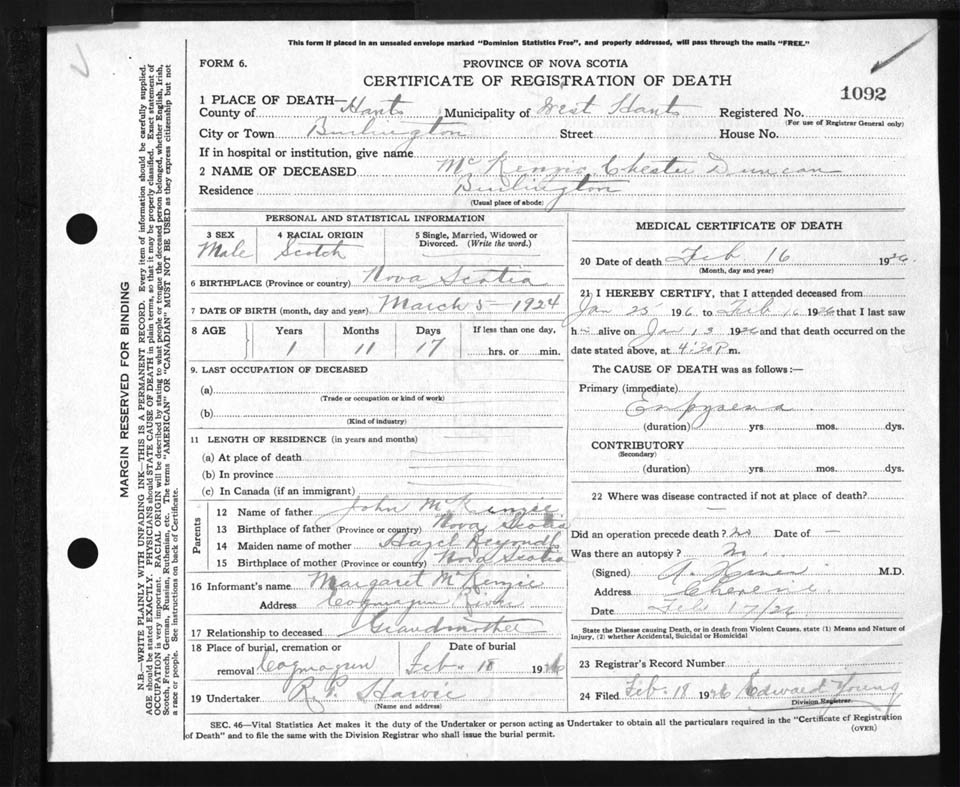 This form if placed in an unsealed envelope marked "Dominion Statistics Free", and properly addressed, will pass through the mails "FREE."
FORM 6.
PROVINCE OF NOVA SCOTIA
CERTIFICATE OF REGISTRATION OF DEATH
1092
1 PLACE OF DEATH—
County of Hants Municipality of West Hants Registered No.
(For use of Registrar General only)
City or Town Burlington Street House No.
If in hospital or institution, give name
2 NAME OF DECEASED McKenzie, Chester Duncan
Residence Burlington
(Usual place of abode)
PERSONAL AND STATISTICAL INFORMATION
3 SEX 4 RACIAL ORIGIN 5 Single, Married, Widowed or Divorced. (Write the word.)
Male Scotch
6 BIRTHPLACE (Province or country) Nova Scotia
7 DATE OF BIRTH (month, day and year) March 5 — 1924
8 AGE Years Months Days If less than one day,
1 11 17 hrs. or min.
9. LAST OCCUPATION OF DECEASED
(a)
(Trade or occupation or kind of work)
(b)
(Kind of industry)
11 LENGTH OF RESIDENCE (in years and months)
(a) At place of death
(b) In province
(c) In Canada (if an immigrant)
Parents
12 Name of father John McKenzie
13 Birthplace of father (Province or country) Nova Scotia
14 Maiden name of mother Hazel
15 Birthplace of mother (Province or country) Nova Scotia
16 Informant's name Margaret McKenzie
Address Cogmagun River
17 Relationship to deceased Grandmother
18 Place of burial, cremation or Date of burial
removal Cogmagun Feb. 18 1926
19 Undertaker R. P. Harvie
(Name and address)
MEDICAL CERTIFICATE OF DEATH
20 Date of death Feb 16 1926.
(Month, day and year)
21 I HEREBY CERTIFY, that I attended deceased from
Jan 25 1926 to Feb 16 1926 that I last saw
h alive on Jan 1926 and that death occurred on
date stated above, at 4:30 P m.
The CAUSE OF DEATH was as follows:—
Primary (immediate)
Empyaema
(duration) yrs. mos. dys.
CONTRIBUTORY
(Secondary)
(duration) yrs. mos. dys.
22 Where was disease contracted if not at place of death?
—
Did an operation precede death? No Date of —
Was there an autopsy? No.
(Signed) A. M.D.
Address
Date Feb 17/26
State the Disease causing Death, or in death from Violent Causes. state (1) Means and Nature of Injury, (2) whether Accidental, Suicidal or Homicidal
23 Registrar's Record Number
24 Filed Feb. 18 1926 Edward Young
Division Registrar.
SEC. 46—Vital Statistics Act makes it the duty of the Undertaker or person acting as Undertaker to obtain all the particulars required in the "Certificate of Registration
of Death" and to file the same with the Division Registrar who shall issue the burial permit.
(OVER)
MARGIN RESERVED FOR BINDING
N.B.—WRITE PLAINLY WITH UNFADING INK—THIS IS A PERMANENT RECORD. Every item of information should be carefully supplied.
AGE should be stated EXACTLY. PHYSICIANS should STATE CAUSE OF DEATH in plain terms, so that it may be properly classified. Exact statement of
OCCUPATION is very important. RACIAL ORIGIN will be described by stating to what people or tongue the deceased person belonged, whether English, Irish,
Scotch, French, German, Russian, Ruthenian, etc. The terms "AMERICAN" OR "CANADIAN" MUST NOT BE USED as they express citizenship but not
a race or people. See instructions on back of Certificate.